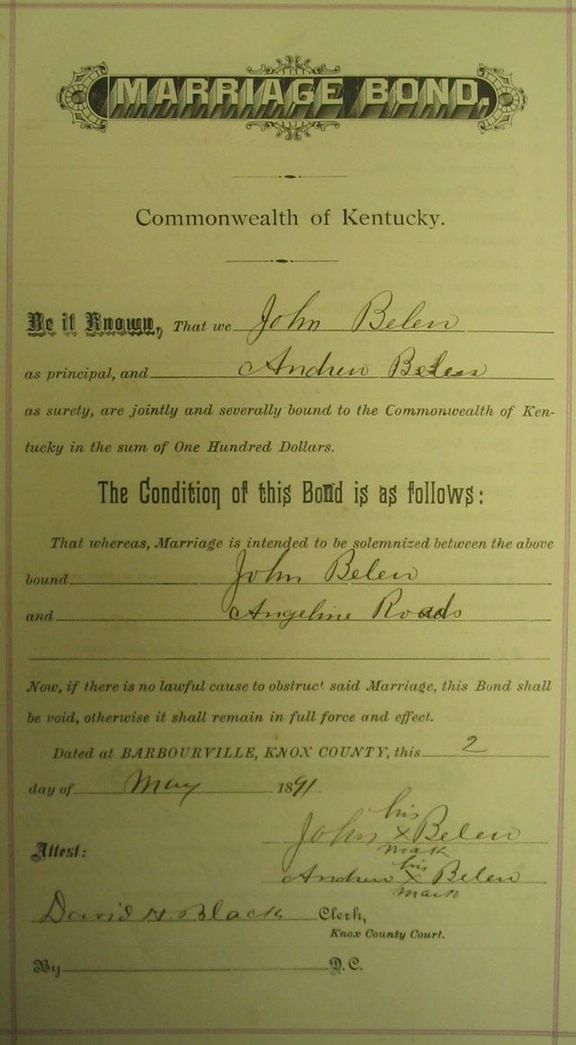 MARRIAGE BOND.
Commonwealth of Kentucky.
Be it Known, That we John Belew
as principal, and Andrew Belew
as surety, are jointly and severally bound to the Commonwealth of Ken-
tucky in the sum of One Hundred Dollars.
The Condition of this Bond is as follows:
That whereas, Marriage is intended to be solemnized between the above
bound John Belew
and Angeline Roads
Now, if there is no lawful cause to obstruct said Marriage, this Bond shall
be void, otherwise it shall remain in full force and effect.
Dated at BARBOURVILLE, KNOX COUNTY, this 2
day of May 1891
his
John x Belew
mark
Attest:
his
Andrew x Belew
mark
David H. Black Clerk,
Knox County Court.
By D. C.